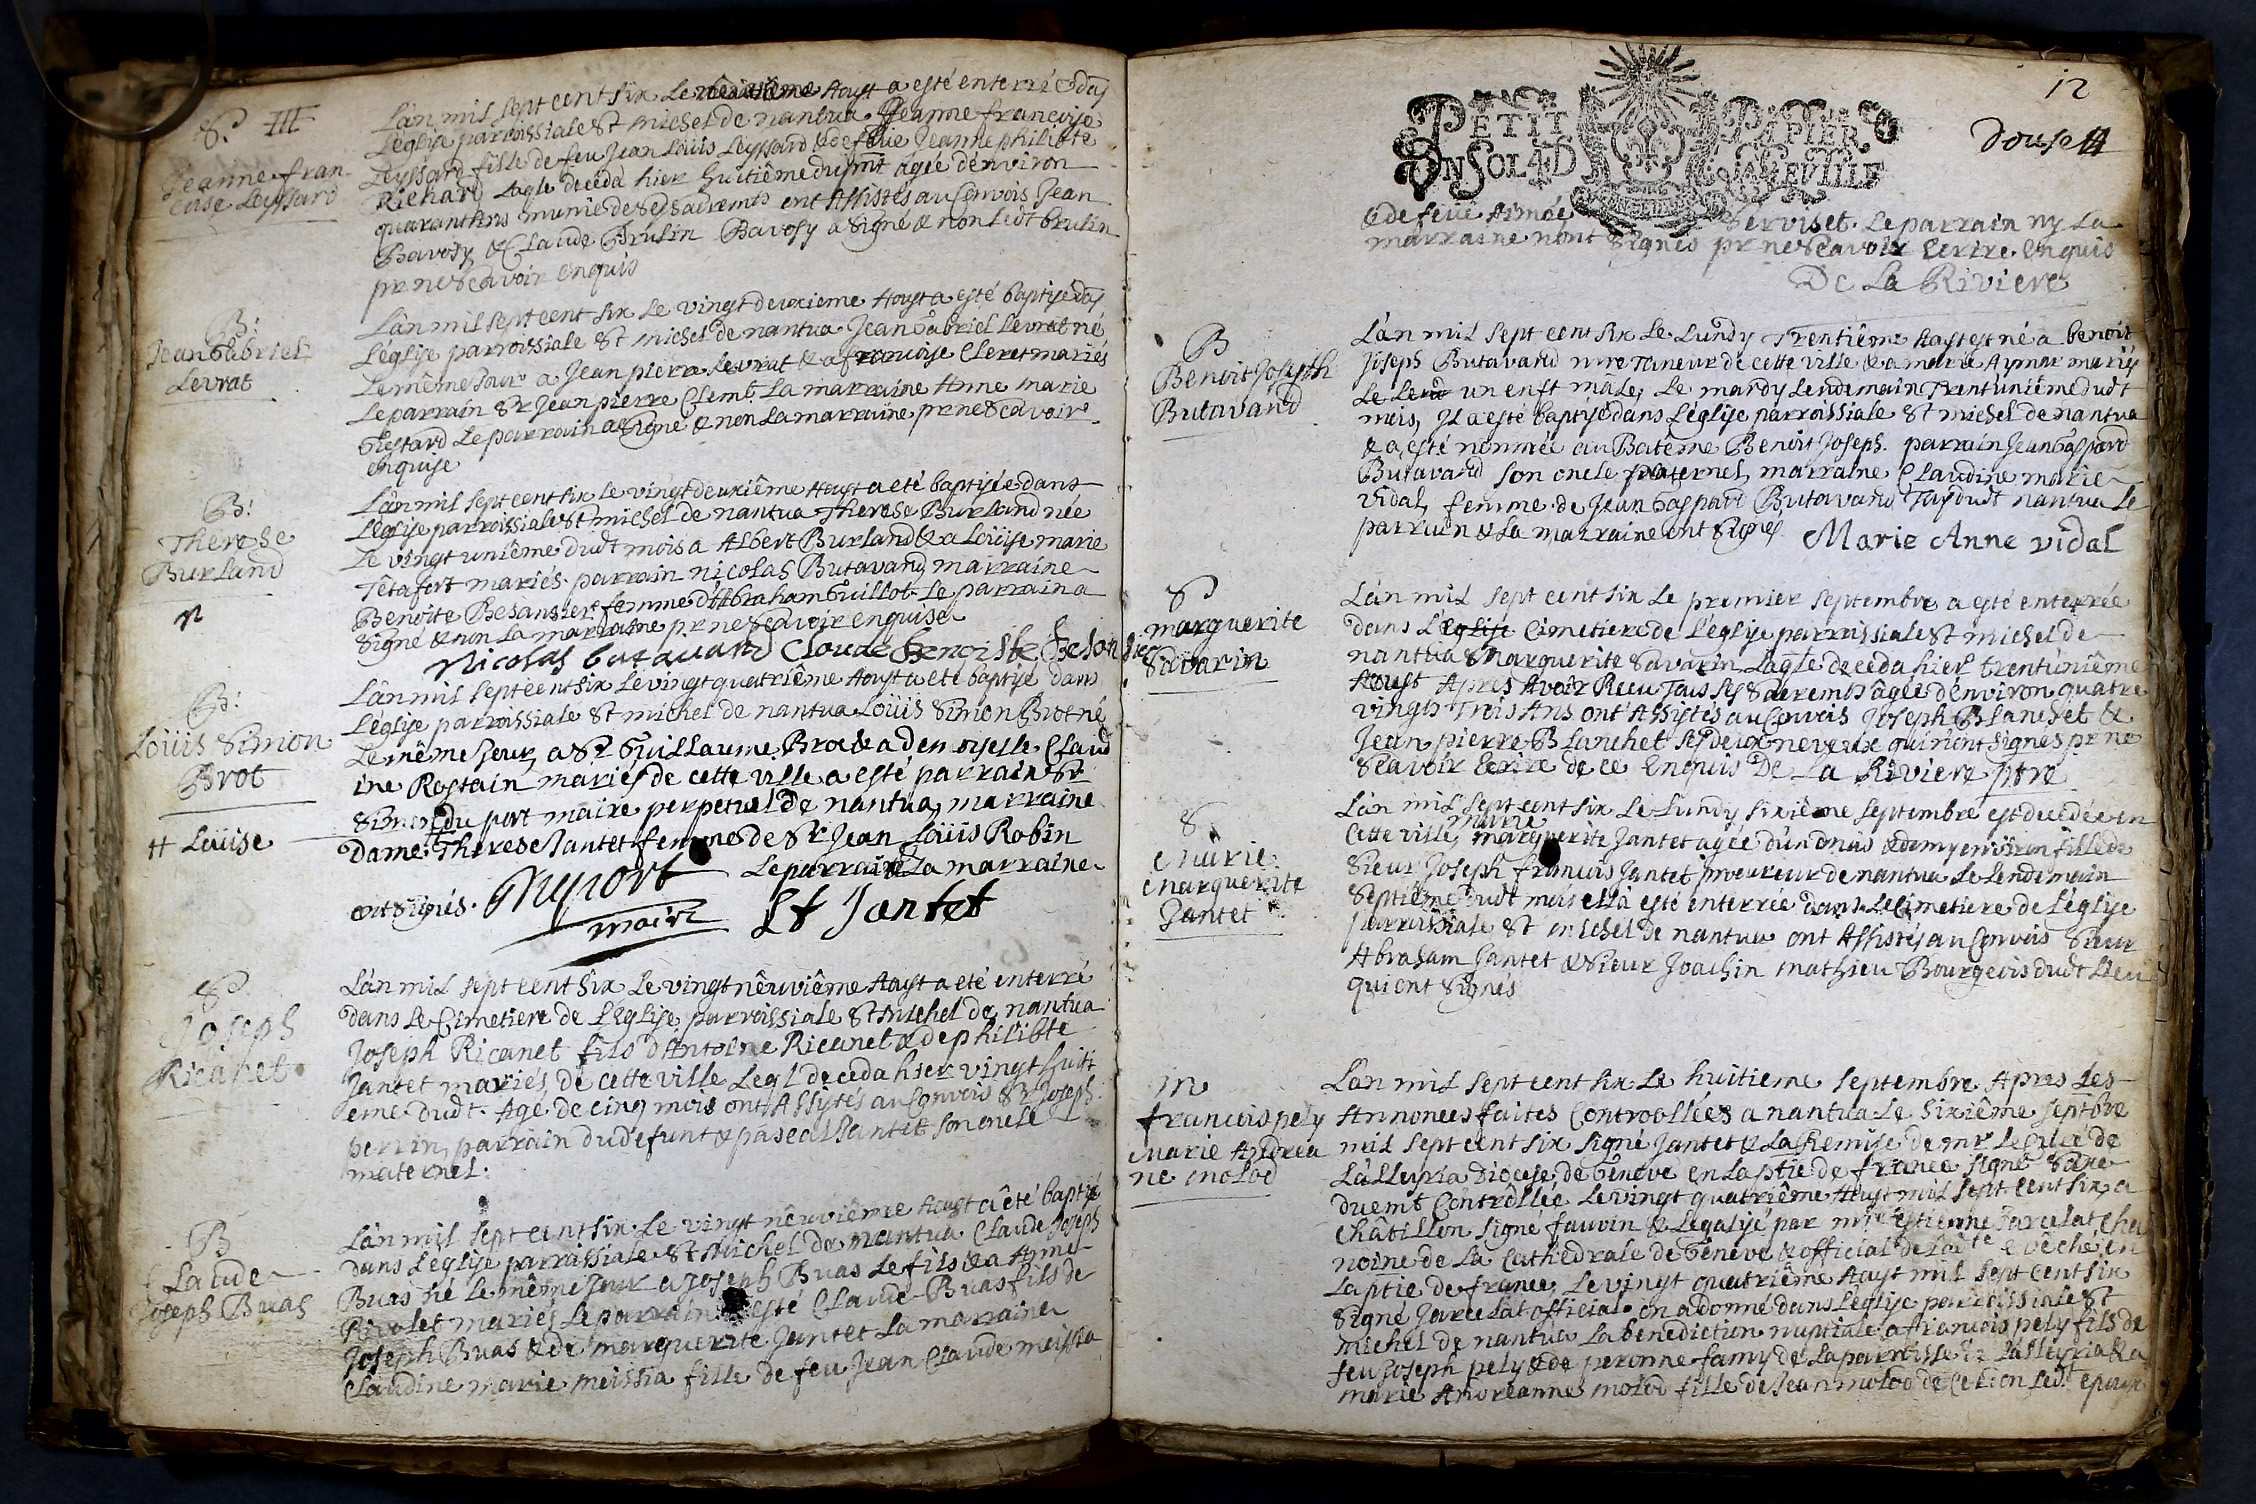 S. III
Jeanne fran-
coise Leyssard
Lan mil sept cent six le neuvième Aoust a esté enterrée das
L'église parroissiale St michel de nantua Jeanne francoise
Leyssard fille de feu Jean Loüis Leyssard & de feüe Jeanne philibte
Richard Laqle deceda hier huitiême du pnt agée d'environ
quarant Ans munie de ses sacremts ont Assistés au Convois Jean
Bavosy & Claude Brulin Bavosy a signé & non ledt brulin
pr ne scavoir enquis
B:
Jean Gabriel
Levrat
Lan mil sept cent six le vingt deuxieme Aoust a esté baptisé das
L'église parroissiale St michel de nantua Jean Gabriel Levrat né
Le même Jour a Jean pierre Levrat & a francoise Cleret mariés
Le parrain Sr Jean pierre Clemt La marraine Anne marie
Testard Le parrain a signé & non La marraine pr ne scavoir
enquise
B:
Therese
Burland
Lan mil sept cent six le vingt deuxiême Aoust a eté baptisée dans
L'église parroissiale St michel de nantua Therese Burland née
Le vingt uniême dudt mois a Albert Burland & a Loüise marie
Têtafort mariés. parrain nicolas Butavand marraine
Benoîte Besansier femme d'Abraham Guillot Le parrain a
signé & non La marraine pr ne scavoir enquise
Nicolas butavand Claude Benoiste Besansier
B:
Loüis Simon
Brot
# Loüise
Lan mil sept cent six Le vingt quatriême Aoust a eté baptisé dans
L'église parroissiale St michel de nantua Loüis Simon Brot né
Le même Jour, a Sr Guillaume Brot & a demoiselle Claud
ine Rostain mariés de cette ville a esté parrain Sr
Simon du port maire perpetuel de nantua, marraine
Dame Therese Jantet femme de Sr Jean Loüis Robin
Le parrain & La marraine
ont signés. Duport
maire
Lt Jantet
S
Joseph
Ricanet
Lan mil sept cent six Le vingt nêuviême Aoust a eté enterré
dans Le Cimetiere de L'église parroissiale St Michel de nantua
Joseph Ricanet fils d'Antoine Ricanet & de philibte
Jantet mariés de cette ville Leql deceda hier vingt huiti
eme dudt. Agé de cinq mois ont Assistés au Convois Sr Joseph
perrin, parrain du defunt & pascal Jantet son oncle
maternel.
B
Claude
Joseph Buas
Lan mil sept cent six Le vingt nêuviême Aoust a été baptisé
dans L'église parroissiale St Michel de nantua Claude Joseph
Buas né le même Jour a Joseph Buas Le fils & a Anne
Rivolet mariés Le parrain a esté Claude Buas fils de
Joseph Buas & de marguerite Jantet La marraine
Claudine marie meissia fille de feu Jean Claude meissia
12
PETIT PAPIER
UN SOL 4 D LA FEUILLE
douse
& de feüe Aimée Serviset. Le parrain ny La
marraine n'ont signés pr ne scavoir Ecrire. Enquis
De La Riviere
B
Benoit Joseph
Butavand
Lan mil sept cent six Le Lundy Trentiême Aoust est né a benoit
Joseph Butavand mre Taneur de cette ville & a marie Aymar mariés
un enft male, Le mardy Lendemain Trentuniême dudt
mois, Jl a esté baptisé dans L'église parroissiale St michel de nantua
& a esté nommée au Batême Benoit Joseph. parrain Jean Gaspard
Butavand son oncle paternel, marraine Claudine marie
Vidal, femme de Jean Gaspard Butavand Tous dudt nantua Le
parrain & La marraine ont signés
Marie Anne vidal
S
marguerite
Savarin
Lan mil sept cent six Le premier septembre a esté enterrée
dans L'église Cimetiere de L'église parroissiale St michel de
nantua Marguerite Savarin Laqle deceda hier trentuniême
Aoust Apres Avoir Recu Tous ses sacremts âgée d'environ quatre
vingts Trois Ans ont Assistés au Convois Joseph Blanchet &
Jean pierre Blanchet ses deux neveux qui n'ont signés pr ne
scavoir Ecrire de ce Enquis De La Riviere ptre
S
Marie
Marguerite
Jantet
Lan mil sept cent six Le Lundy sixiême septembre est decedée en
Cette ville, marie marguerite Jantet agée d'un mois & demy environ fille de
Sieur Joseph francois Jantet procureur de nantua Le Lendemain
septiême dudt mois ella esté enterrée dans Le Cimetiere de L'église
parroissiale St michel de nantua ont Assistés au Convois Sieur
Abraham Jantet & Sieur Joachin mathieu Bourgeois dudt Lieu
qui ont signés
m
francois pely
Marie Andréa
ne molod
Lan mil sept cent six Le huitieme septembre Apres Les
Annonces faites Controollées a nantua Le sixiême septbre
mil sept cent six signé Jantet & La Remise de mr Le Curé de
Lalleyria Diocese de Géneve en La ptie de france signé
duemt Contrôllée Le vingt quatriême Aoust mil sept cent six, a
Châtillon signé fauvin & Legalisé par mre Estienne Jarcelat cha
noine de La Cathedrale de Géneve & official de Ladte Evêché en
La ptie de france, Le vingt quatriême Aoust mil sept cent six
signé Jarcelat official on a donné dans L'église parroissiale St
michel de nantua La benediction nuptiale a francois pely fils de
feu Joseph pely & de peronne famy de La parroisse de Lalleyria & a
marie Andréanne molod fille de Jean molod de